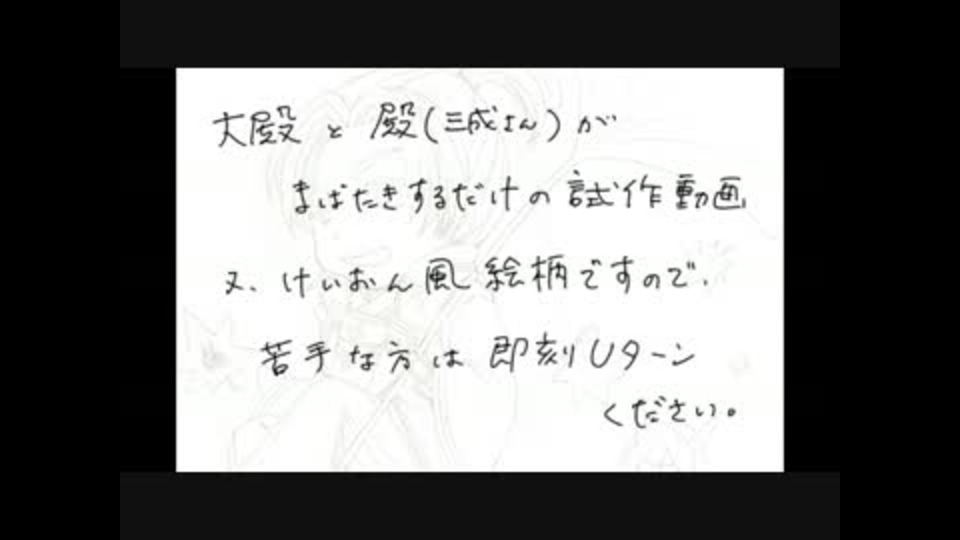 大殿と殿(三成さん)が
まばたきするだけの試作動画
又、けいおん風絵柄ですので、
苦手な方は即刻Uターン
ください。